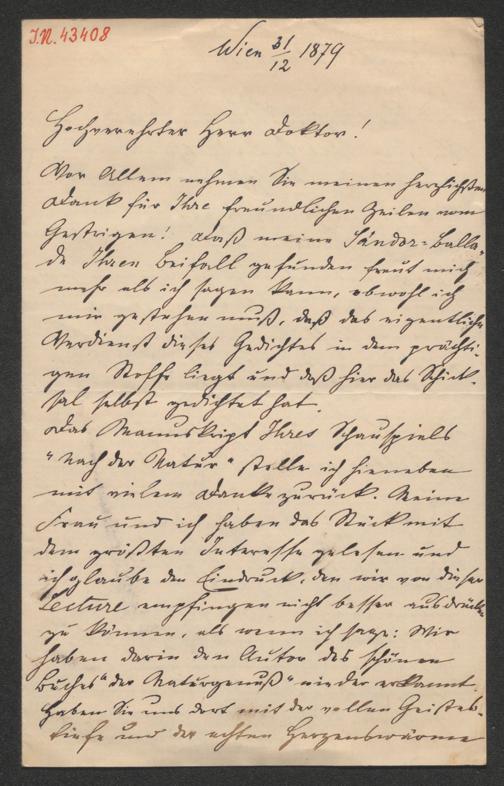 I.N. 43408
Wien 31/12 1879
Hochverehrter Herr Doktor!
Vor Allem nehmen Sie meinen herzlichsten
Dank für Ihre freundlichen Zeilen vom
Gestrigen! Daß meine Sándor-Balla-
de Ihren Beifall gefunden freut mich
mehr als ich sagen kann, obwohl ich
mir gestehen muß, daß das eigentliche
Verdienst dieses Gedichtes in dem prächti-
gen Stoffe liegt und daß hier das Schick-
sal selbst gedichtet hat.
Das Manuskript Ihres Schauspiels
"Nach der Natur" stelle ich hieneben
mit vielem Danke zurück. Meine
Frau und ich haben das Stück mit
dem größten Interesse gelesen und
ich glaube den Eindruck, den wir von dieser
Lecture empfingen nicht besser ausdrücken
zu können, als wenn ich sage: Wir
haben darin den Autor des schönen
Buches "Der Naturgenuß" wieder erkannt.
Haben Sie uns dort mit der vollen Geistes-
tiefe und der echten Herzenswärme